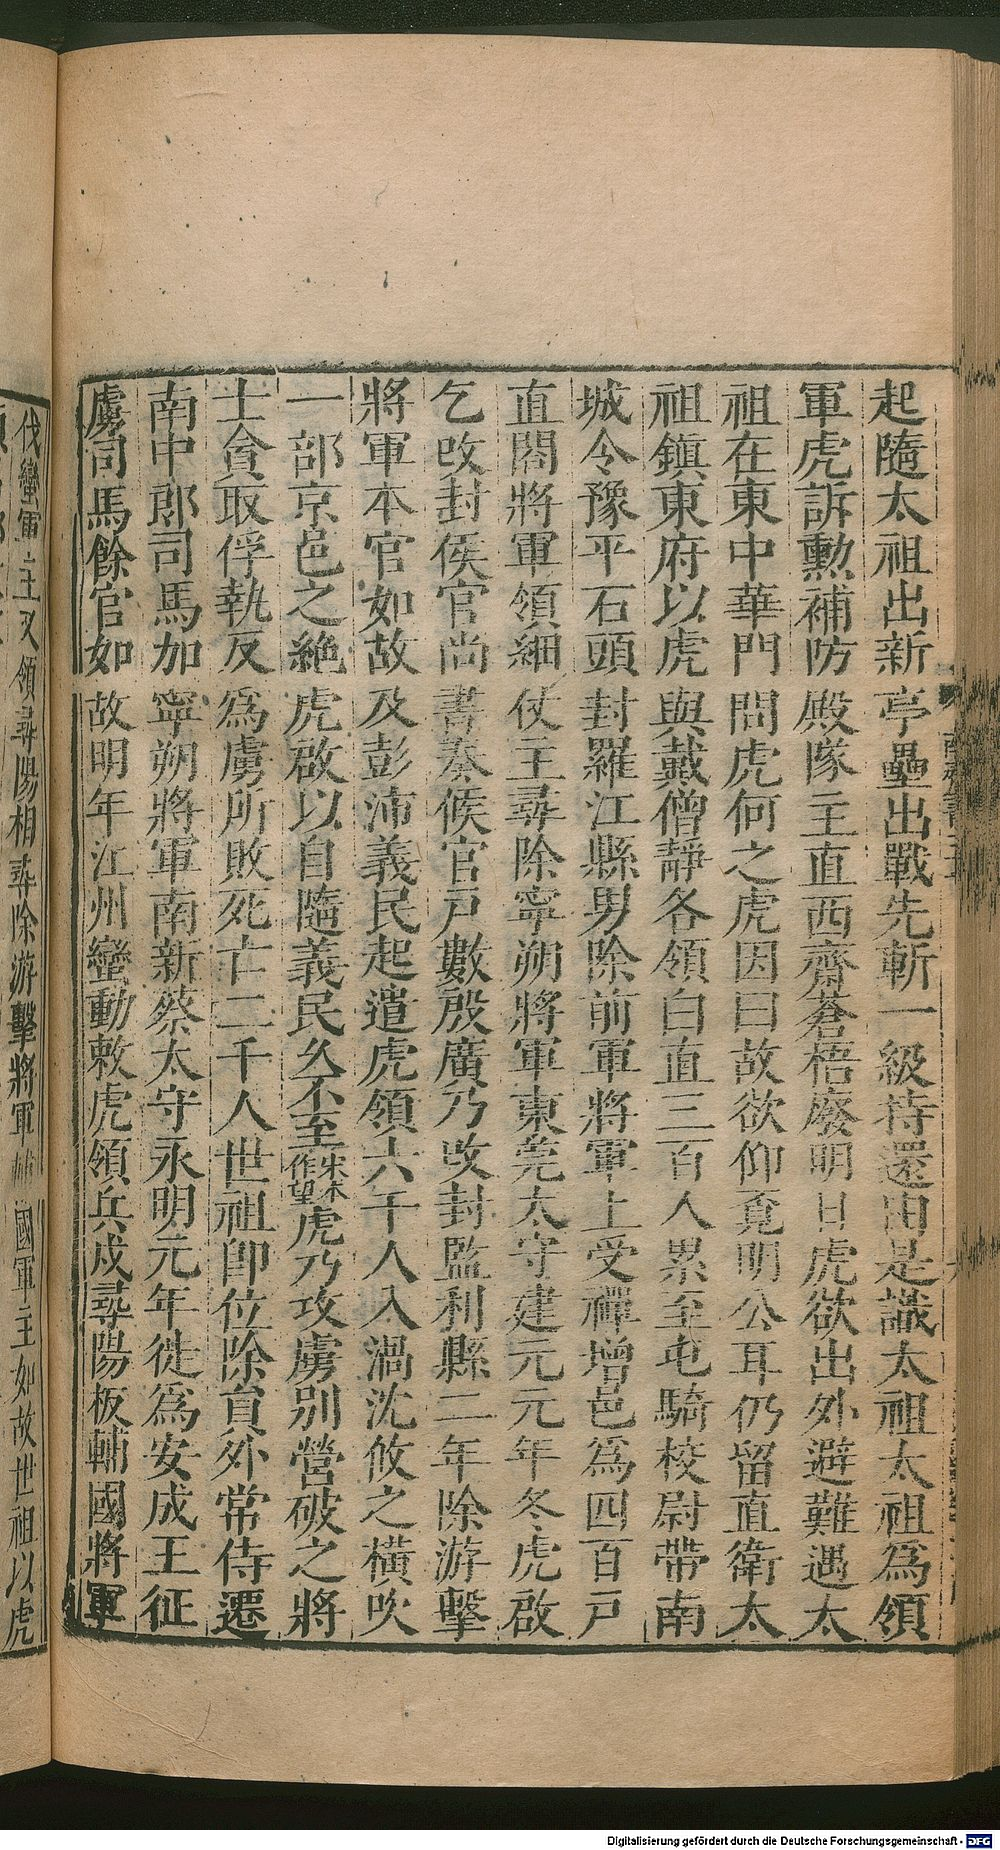 起隨太祖出新亭壘出戰先斬一級持還由是識太祖太祖爲領
軍虎訴勲補防殿隊主直西齋蒼梧廢明日虎欲出外避難遇太
祖在東中華門問虎何之虎因曰故欲仰覔明公耳仍留直衛太
祖鎮東府以虎與戴僧靜各領白直三百人累至屯騎校尉帶南
城令豫平石頭封羅江縣男除前軍將軍上受禪增邑爲四百戸
直閤將軍領細仗主尋除寧朔將軍東莞太守建元元年冬虎啟
乞改封侯官尚書奏候官戸數殷廣乃改封監利縣二年除游擊
將軍本官如故及彭沛義民起遣虎領六千人入渦沈攸之橫吹
一部京邑之絶虎啟以自隨義民久不至宋本作望虎乃攻虜别營破之將
士貪取俘執反爲虜所敗死亡二千人世祖卽位除員外常侍遷
南中郎司馬加寧朔將軍南新蔡太守永明元年徙爲安成王征
虜司馬餘官如故明年江州蠻動敕虎領兵戍尋陽板輔國將軍
伐蠻軍主又領尋陽相尋除游擊將軍輔國軍主如故世祖以虎
Digitalisierung gefördert durch die Deutsche Forschungsgemeinschaft - DFG